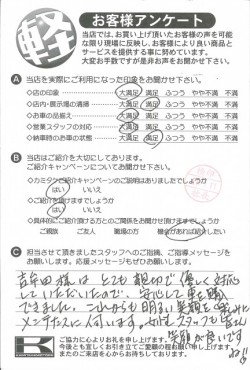 軽
お客様アンケート
当店では、お買い上げ頂いたお客様の声を可能
な限り現場に反映し、お客様により良い商品と
サービスを提供する事に努めています。
大変お手数ですが是非お声をお聞かせ下さい。
A 当店を実際にご利用になった印象をお聞かせ下さい。
○店の印象 大満足 満足 ふつう やや不満 不満
○店内・展示場の清掃 大満足 満足 ふつう やや不満 不満
○お車の品揃え 大満足 満足 ふつう やや不満 不満
○営業スタッフの対応 大満足 満足 ふつう やや不満 不満
○納車時のお車の状態 大満足 満足 ふつう やや不満 不満
B 当店はご紹介を大切にしております。
ご紹介キャンペーンについてお聞かせ下さい。
○カミタケご紹介キャンペーンのご説明はありましたでしょうか
はい いいえ
○ご紹介を頂けますでしょうか
はい いいえ
○具体的にご紹介頂ける方とのご関係をお聞かせ頂けますでしょうか
ご親族 ご友人 職場の方 機会があれば紹介したい
C 担当させて頂きましたスタッフへのご指摘、ご指導メッセージを
お願いします。応援メッセージもぜひお願いします。
様は とても 親切で 優しく 対応
していただいたので、安心して 車を購入
できました。これからも 明るい 笑顔を
メンテナンスに伺います。 スタッフも 皆さん
笑顔が良いです
ね!!
K
ご協力に心よりお礼を申し上げます。
今後とも宜しくお引き立てご愛顧の程お願い申し上げます。
またのご来店を心からお待ちしております。